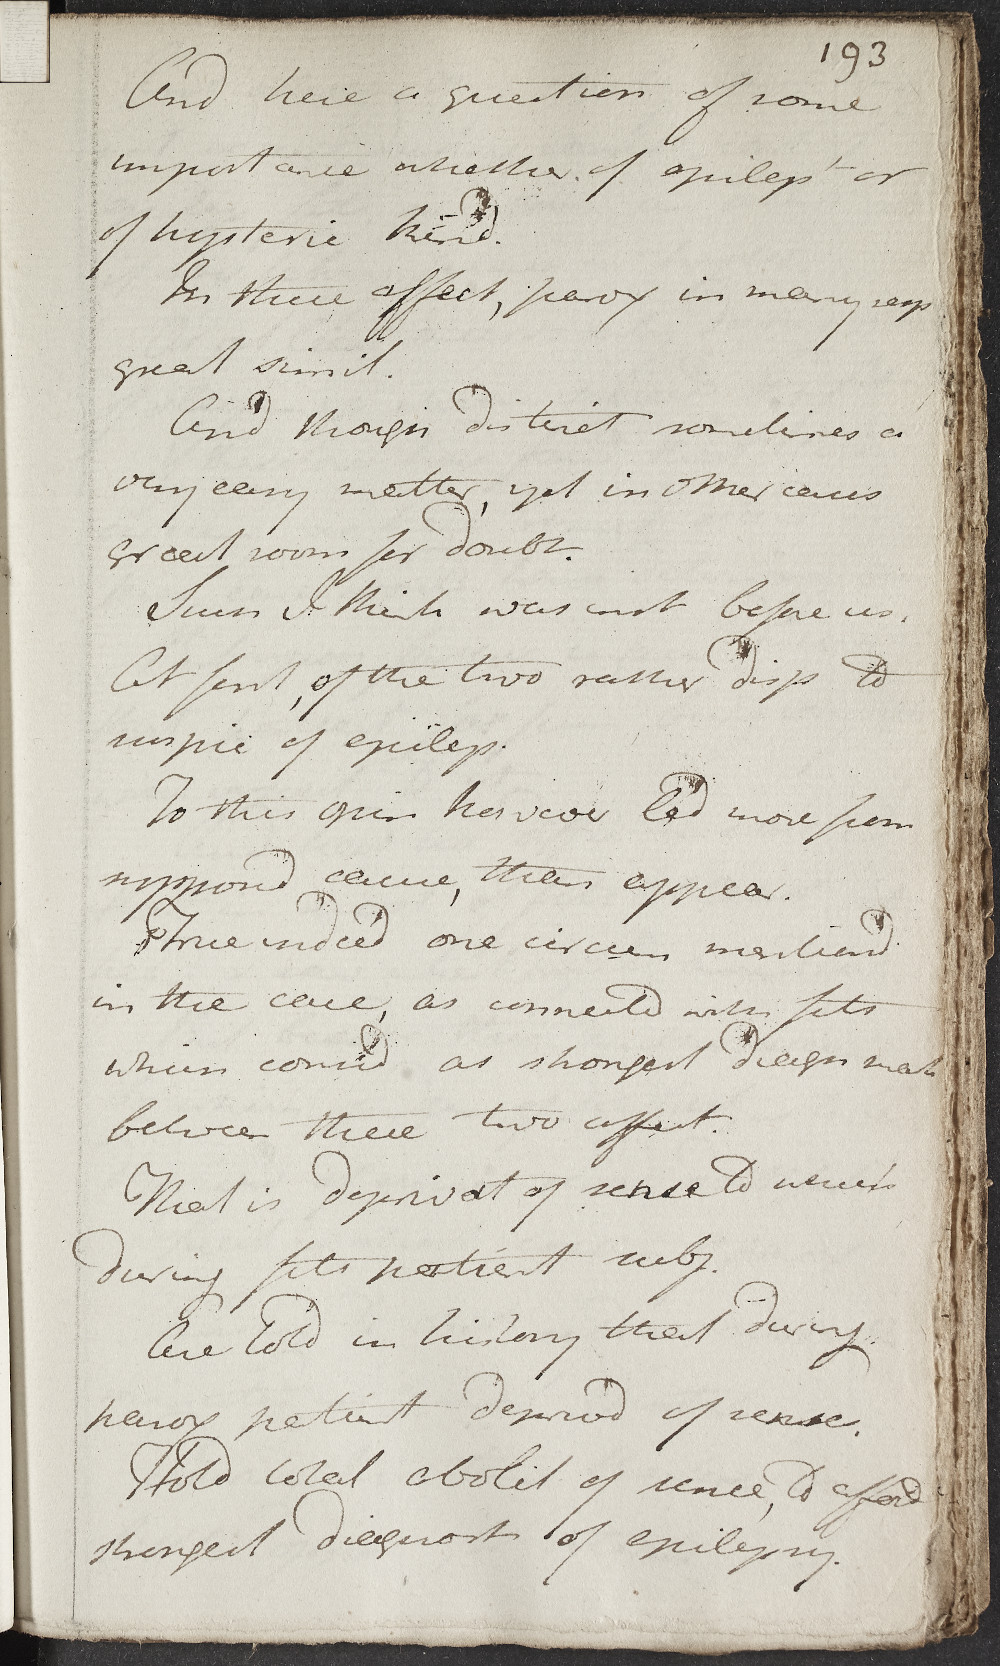 193
And here a question of some
importance whether of epilept or
of hysteric kind.
In these affect, parox in many resp
great simil.
And though distinct sometimes a
very easy matter, yet in other cases
great room for doubt.
Such I think was inst before us.
At first, of the two rather disp to
suspic of epilep.
To this opin however led more from
supposed cause, than appear.
True indeed one circum mentiond
in the case, as connected with fits
which consid as strongest diagn mark
between these two affect.
That is deprivat of sense to which
during fits patient subj.
Are told in history that during
parox patient deprivd of sense.
Hold total abolit of sense, to afford
strongest diagnost of epilepsy.